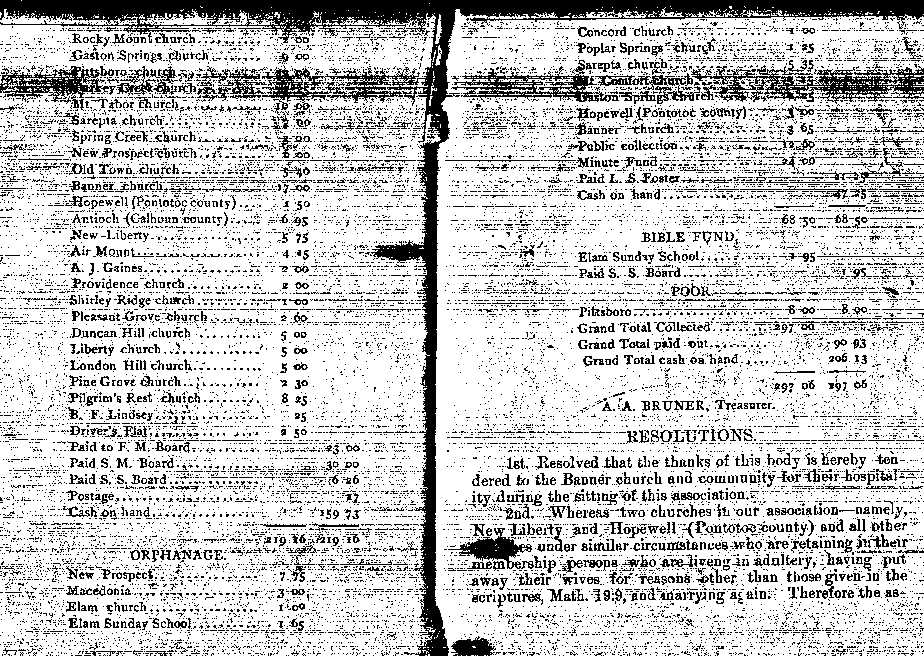 Rocky Mount church 2 00
Gaston Springs church 9 00
Pittsboro church
Turkey Creek church
Mt. Tabor church 10 00
Sarepta church 00
Spring Creek church 00
New Prospect church 6 00
Old Town church 5 40
Banner church 17 00
Hopewell (Pontotoc county) 1 50
Antioch (Calhoun county) 6 95
New Liberty 5 75
Air Mount 4 25
A. J. Gaines 2 00
Providence church 2 00
Shirley Ridge church 1 00
Pleasant Grove church 2 60
Duncan Hill church 5 00
Liberty church 5 00
London Hill church 5 00
Pine Grove church 2 30
Pilgrim's Rest church 8 25
B. F. Lindsey 25
Driver's Flat 2 50
Paid to F. M. Board 23 00
Paid S. M. Board 30 00
Paid S. S. Board 6 26
Postage 17
Cash on hand 159 73
219 16 219 16
ORPHANAGE.
New Prospect 7 75
Macedonia 3 00
Elam church 1 00
Elam Sunday School 1 65
Concord church 1 00
Poplar Springs church 1 25
Sarepta church 5 35
Mt Comfort church
Gaston Springs church
Hopewell (Pontotoc county) 3 00
Banner church 3 65
Public collection 12 60
Minute Fund 24 00
Paid L. S. Foster 21 25
Cash on hand 47 25
68 50 68 50
BIBLE FUND.
Elam Sunday School 1 95
Paid S. S. Board 1 95
POOR
Pittsboro 8 00 8 00
Grand Total Collected 297 06
Grand Total paid out 90 93
Grand Total cash on hand 206 13
297 06 297 06
A. A. BRUNER, Treasurer.
RESOLUTIONS.
1st. Resolved that the thanks of this body is hereby ten-
dered to the Banner church and community for their hospital-
ity during the sitting of this association.
2nd. Whereas two churches in our association—namely,
New Liberty and Hopewell (Pontotoc county) and all other
es under similar circumstances who are retaining in their
membership persons who are liveng in adultery, having put
away their wives for reasons other than those given in the
scriptures, Math. 19:9, and marrying again. Therefore the as-